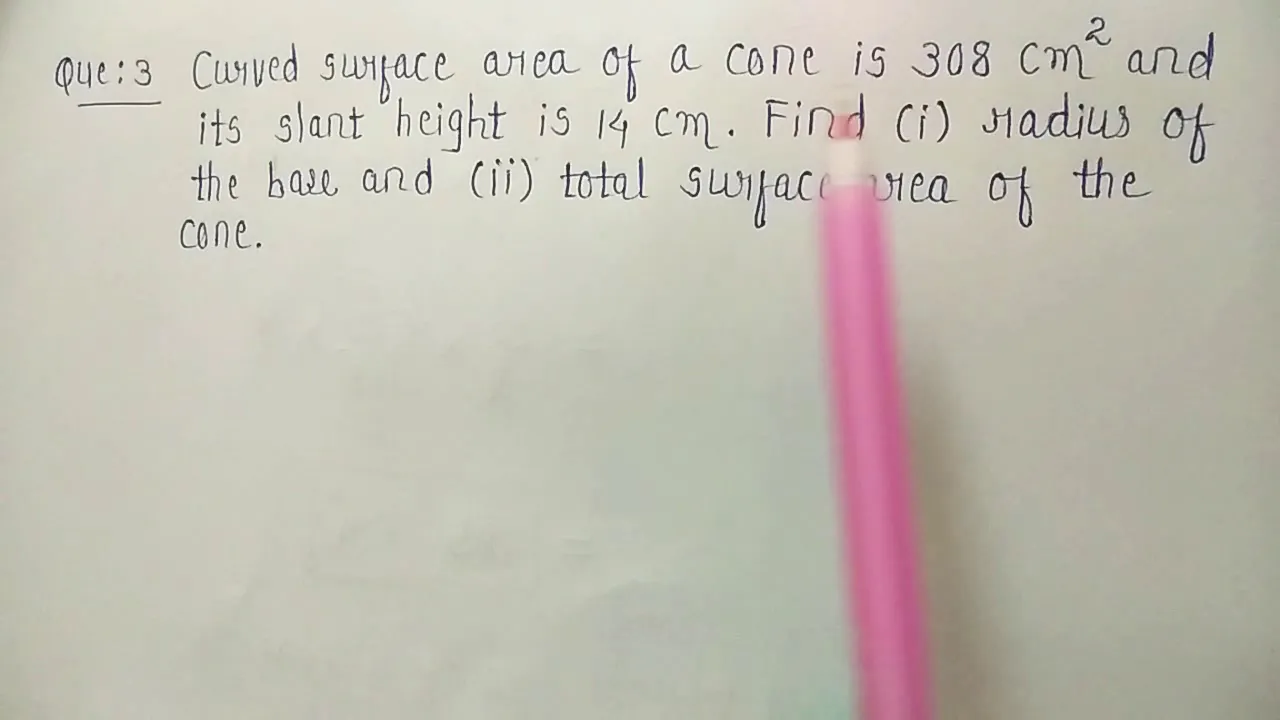 Que:3 Curved surface area of a cone is 308 cm² and
its slant height is 14 cm. Find (i) radius of
the base and (ii) total surface area of the
cone.